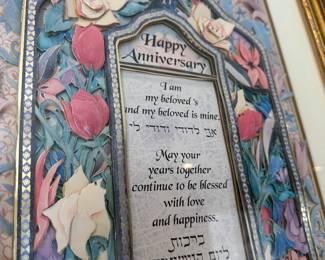 Happy
Anniversary
I am
my beloved's
and my beloved is mine.
אני לדודי ודודי לי
May your
years together
continue to be blessed
with love
and happiness.
ברכות